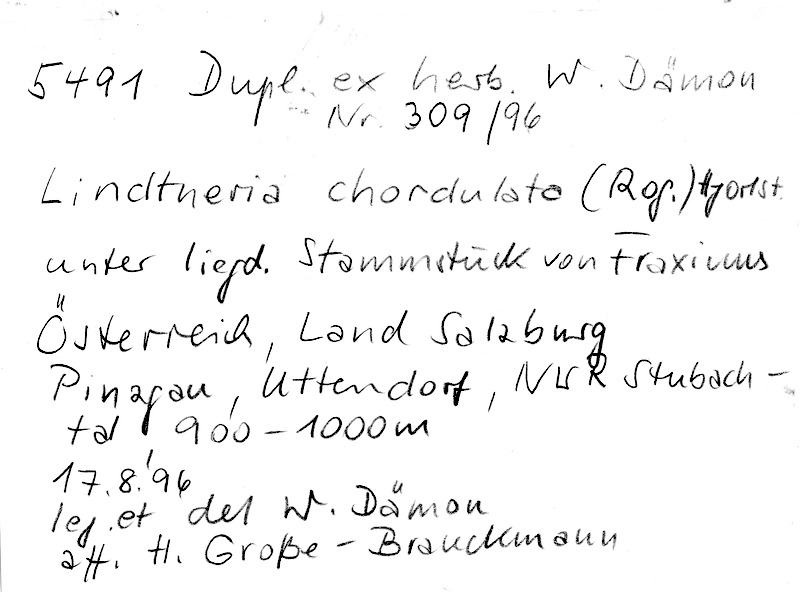 5491 Dupl. ex herb. W. Dämon
Nr. 309/96
Lindtneria chordulata (Rog.) Hjortst.
unter liegd. Stammstück von Fraxinus
Österreich, Land Salzburg
Pinzgau, Uttendorf, NWR Stubach-
tal, 900-1000m
17.8.'96
leg. et det W. Dämon
att. H. Große-Brauckmann